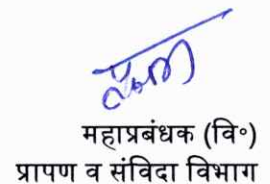 महाप्रबंधक (वि॰)
प्रापण व संविदा विभाग